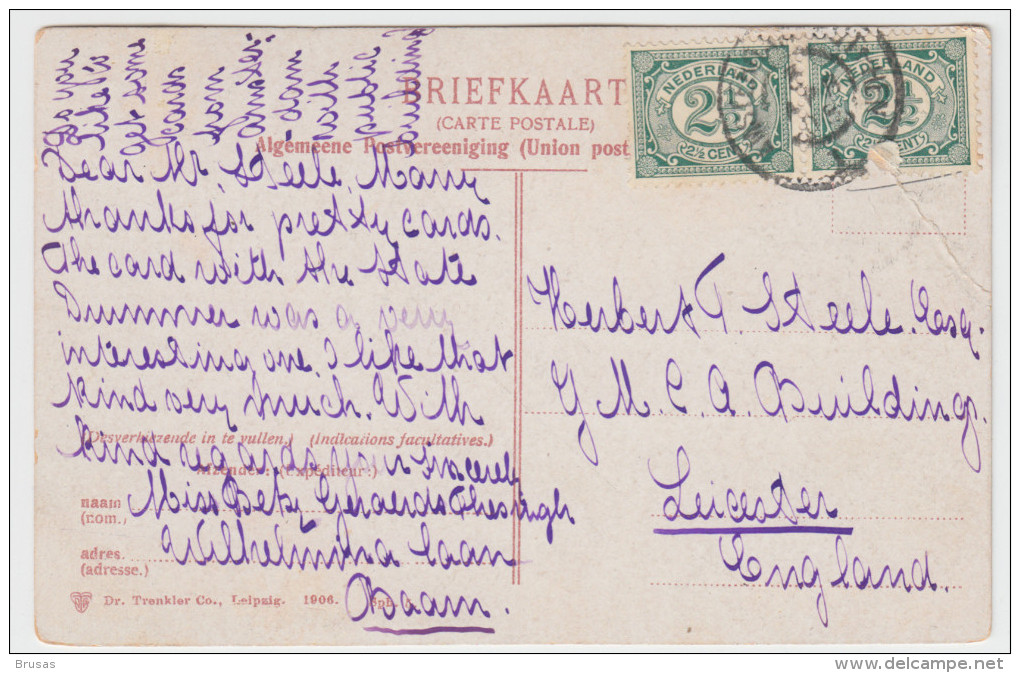 BRIEFKAART
(CARTE POSTALE)
Algemeene Postvereeniging (Union post
NEDERLAND
2½
2½ CENT
NEDERLAND
2½
2½ CENTS
Dear Mr. Steele, Many
thanks for pretty cards.
The card with the State
Drummer was a very
interesting one. I like that
kind very much. With
(Desverkiezende in te vullen.) (Indications facultatives.)
kind regards your sincerely
Afzender: (Expéditeur:)
naam
(nom.)
Miss Betsy Geraerds Thesingh
adres.
(adresse.)
Wilhelmina laan
Baarn.
Dr. Trenkler Co., Leipzig. 1906.
Herbert T. Steele. Esq.
Y M. C. A. Buildings.
Leicester
England.
Brusas
www.delcampe.net